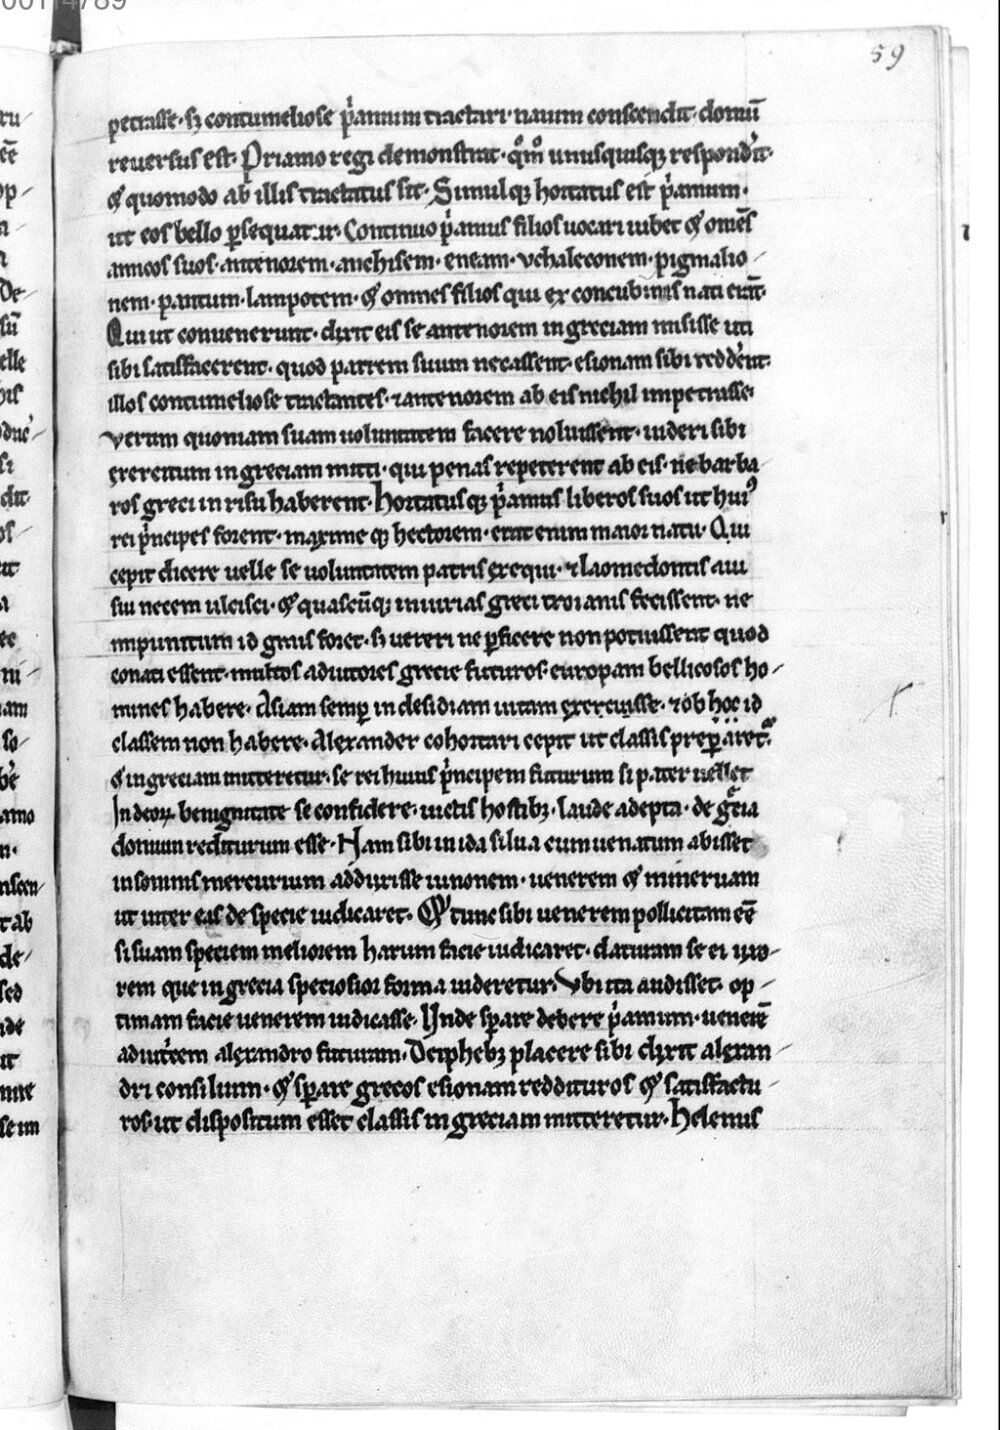 00114789
59
petrasse· sꝫ contumeliose pͥamum tractari· nauim conscendit· domū
reuersus est· Priamo regi demonstrat· qͦmͦ unusquisqꝫ respondͥit·
⁊ quomodo ab illis tractatus sit· Simulqꝫ hortatus est pͥamum·
ut eos bello ꝑsequatur· Continuo pͥamus filios uocari iubet ⁊ om̄s
amicos suos· antenorem· anchisem· eneam· vchaleconem· pigmalio-
nem· pantum· lampotem· ⁊ omnes filios qui ex concubinis nati erāt·
Qui ut conuenerunt· dixit eis se antenorem in greciam misisse uti
sibi satisfacerent· quod patrem suum necassent· esionam sibi reddͥent·
illos contumeliose tractantes· ⁊ antenorem ab eis nichil impetrasse·
verum quoniam suam uoluntatem facere noluissent· uideri sibi
exercitum in greciam mitti· qui penas repeterent ab eis· ne barba-
ros greci in risu haberent· Hortatusqꝫ pͥamus liberos suos ut huiꝰ
rei pͥncipes forent· maxime qꝫ hectorem· erat enim maior natu· Qui
cepit dicere uelle se uoluntatem patris exequi· ⁊ laomedontis aui
sui necem ulcisci· ⁊ quascūqꝫ iniurias greci troianis fecissent· ne
impunitum id grais foret· sꝫ uereri ne ꝑficere non potuissent quod
conati essent· multos adiutores grecie futuros· europam bellicosos ho-
mines habere· Asiam semꝑ in desidiam uitam exercuisse· ⁊ ob hoc id
classem non habere· Alexander cohortari cepit ut classis preꝑaretᷓ·
⁊ in greciam mitteretur· se rei huius pͥncipem futurum si pater uellet
In deoꝝ benignitate se confidere· uictis hostibꝫ· laude adepta· de gᷓcia
domum rediturum esse· Nam sibi in ida silua cum uenatum abisset
in somnis mercurium adduxisse iunonem· uenerem ⁊ mineruam
ut inter eas de specie iudicaret· Et tunc sibi uenerem pollicitam eē
si suam speciem meliorem harum facie iudicaret· daturam se ei uxo-
rem que in grecia speciosior forma uideretur· Vbi ita audisset· op-
timam facie uenerem iudicasse· Vnde sꝑare debere pͥamum· uenerē
adiutͥcem alexandro futuram· Deiphebꝫ placere sibi dixit alexan-
dri consilium· ⁊ sꝑare grecos esionam reddituros ⁊ satisfactu-
ros· ut dispositum esset classis in greciam mitteretur· Helenus